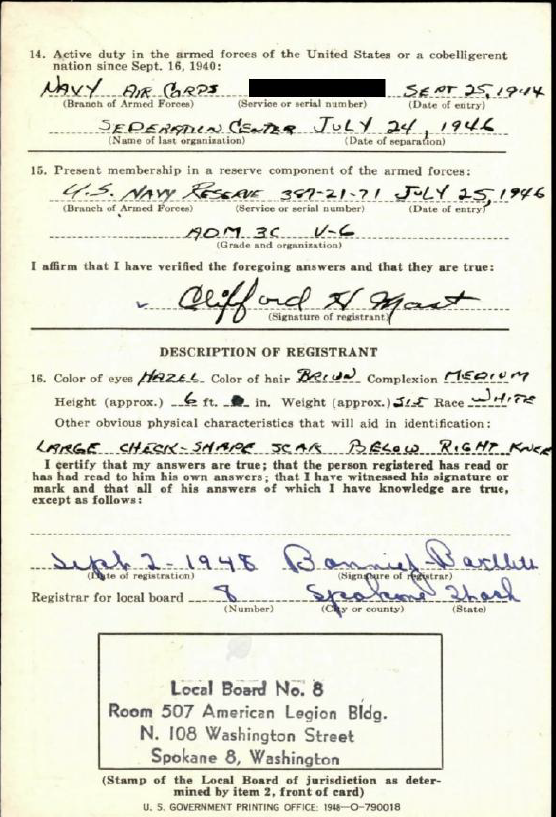 14. Active duty in the armed forces of the United States or a cobelligerent
nation since Sept. 16, 1940:
NAVY AIR CORPS SEPT 25, 1944
(Branch of Armed Forces) (Service or serial number) (Date of entry)
SEPERATION CENTER JULY 24, 1946
(Name of last organization) (Date of separation)
15. Present membership in a reserve component of the armed forces:
U.S. NAVY RESERVE 389-21-71 JULY 25, 1946
(Branch of Armed Forces) (Service or serial number) (Date of entry)
ADM 3C V-6
(Grade and organization)
I affirm that I have verified the foregoing answers and that they are true:
Clifford H Mast
(Signature of registrant)
DESCRIPTION OF REGISTRANT
16. Color of eyes HAZEL Color of hair Complexion MEDIUM
Height (approx.) 6 ft. in. Weight (approx.) Race WHITE
Other obvious physical characteristics that will aid in identification:
LARGE CHECK-SHAPE SCAR BELOW RIGHT KNEE
I certify that my answers are true; that the person registered has read or
has had read to him his own answers; that I have witnessed his signature or
mark and that all of his answers of which I have knowledge are true,
except as follows:
Sept 2-1948 Bartlett
(Date of registration) (Signature of registrar)
Registrar for local board 8 Spokane Wash
(Number) (City or county) (State)
Local Board No. 8
Room 507 American Legion Bldg.
N. 108 Washington Street
Spokane 8, Washington
(Stamp of the Local Board of jurisdiction as deter-
mined by item 2, front of card)
U. S. GOVERNMENT PRINTING OFFICE: 1948—O-790018